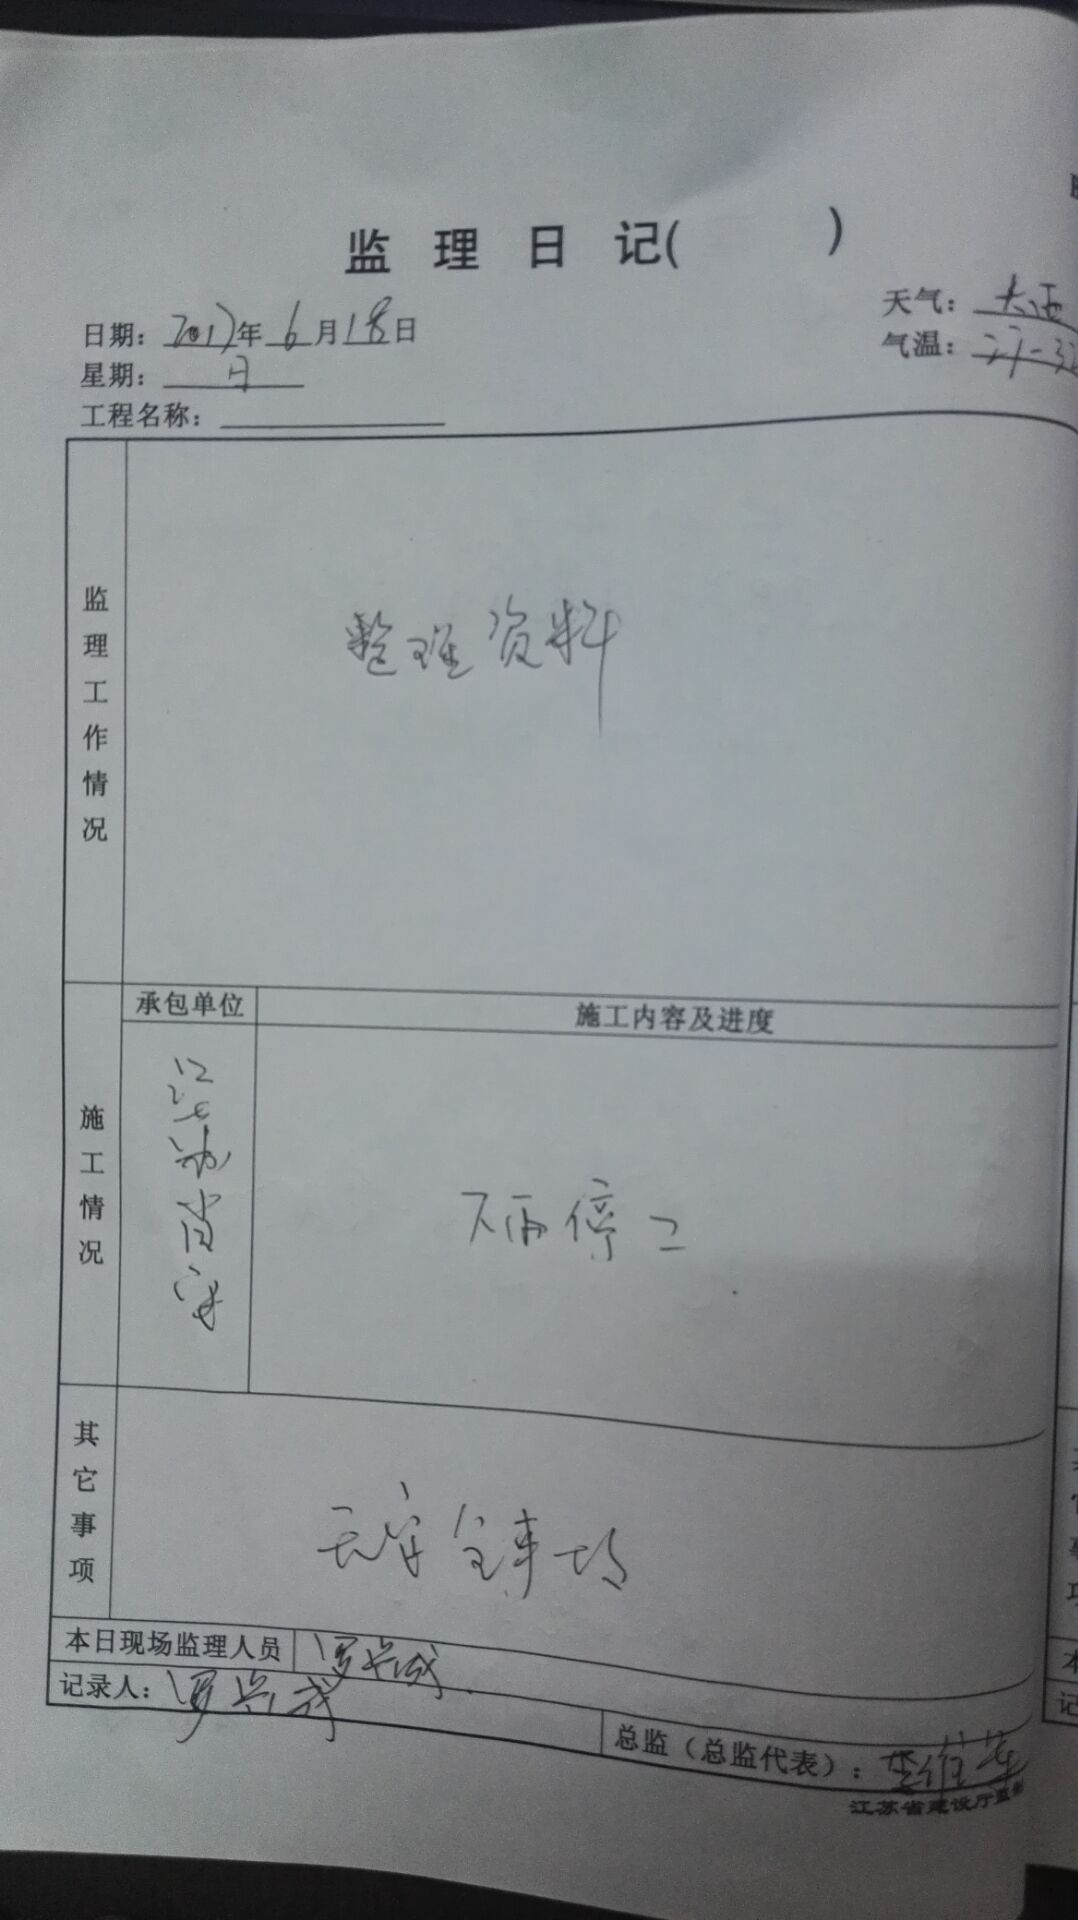 监理日记( )
日期：2017年6月18日
天气：大雨
星期：日
气温：27-32
工程名称：
监理工作情况
整理资料
承包单位
施工内容及进度
施工情况
江苏
下雨停工
其它事项
无安全事故
本日现场监理人员
记录人：
总监（总监代表）：
江苏省建设厅监制